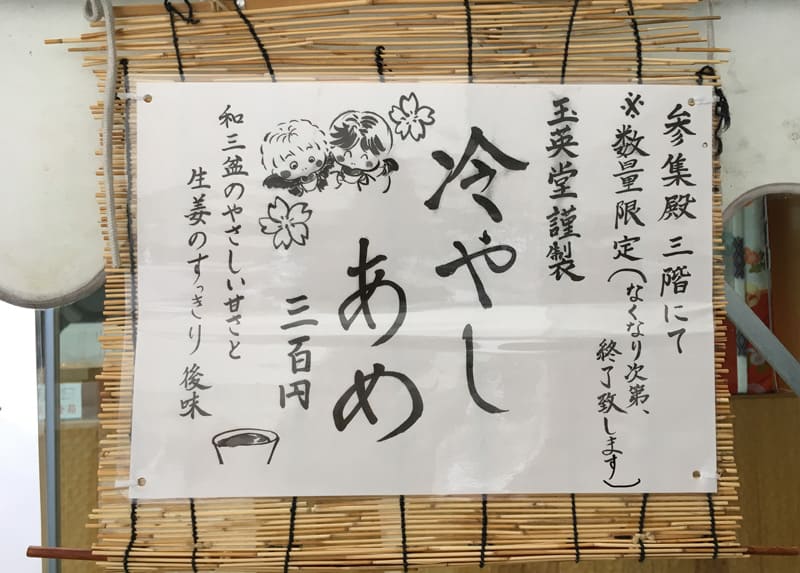 参集殿 三階にて
※数量限定(なくなり次第、
終了致します)
玉英堂謹製
冷やし
あめ
三百円
和三盆のやさしい甘さと
生姜のすっきり後味